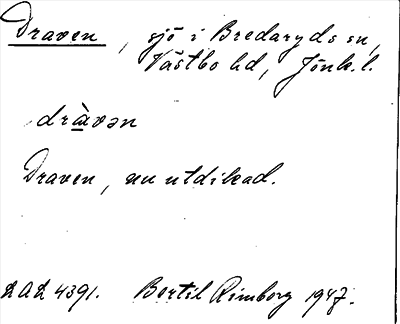 Draven, sjö i Bredaryds sn,
Västbo hd, Jönk. l.
dràvən
Draven, nu utdikad.
LAL 4391. Bertil Rimborg 1947.